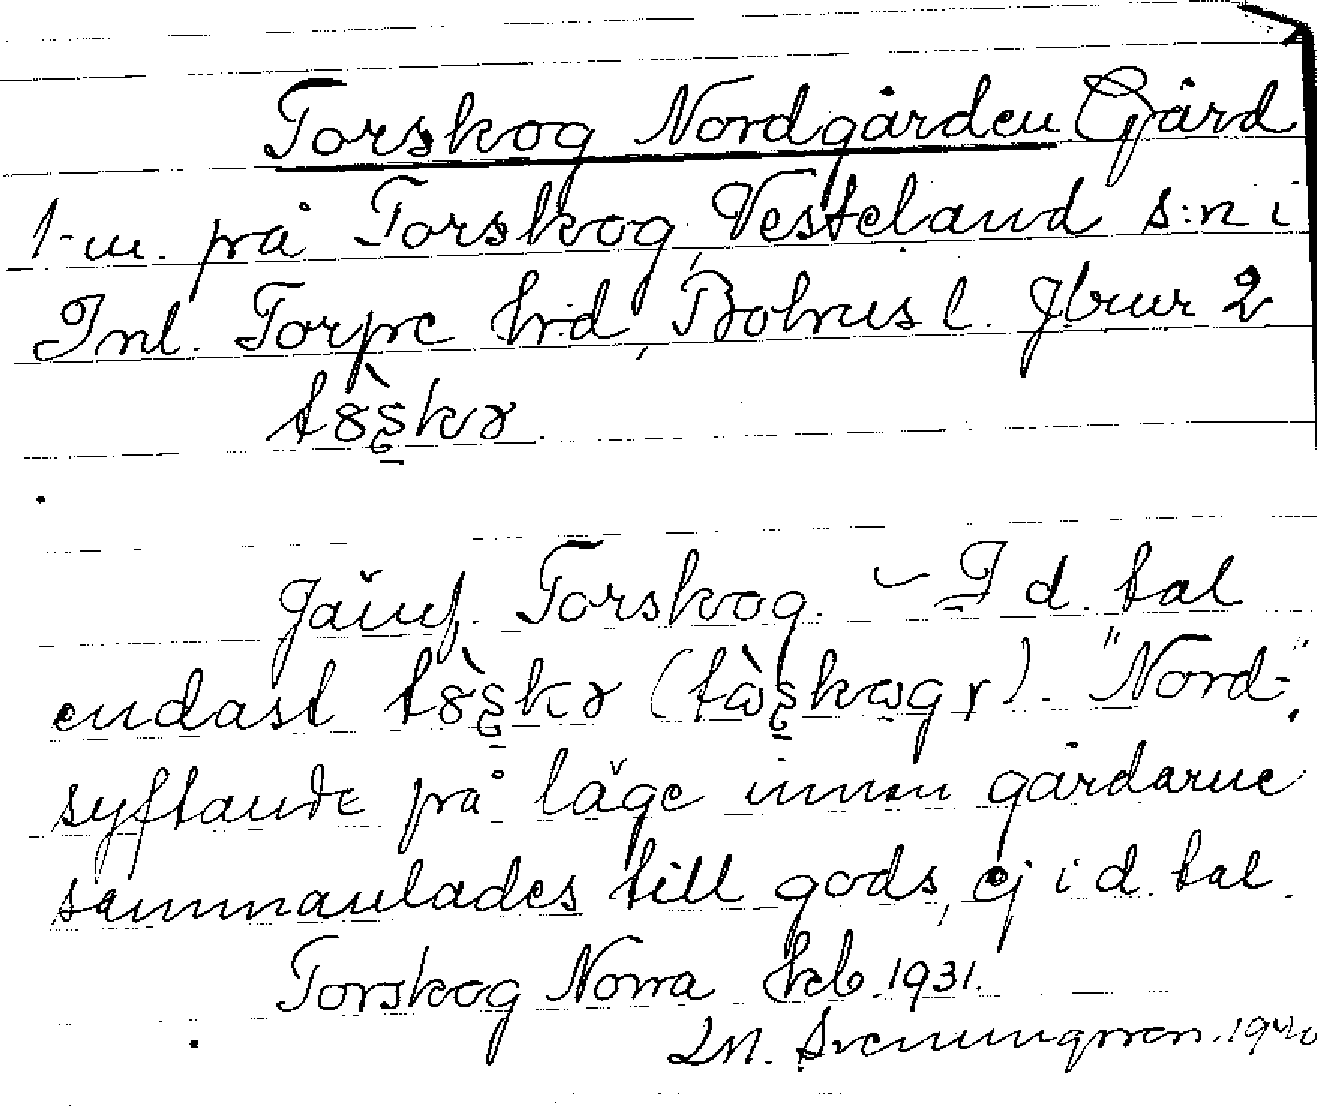 Torskog Nordgården Gård
1 m. på Torskog, Vesteland s:n i
Inl. Torpe hd, Bohus l. Jbnr 2
Jämf. Torskog. – I d. tal
endast "Nord-",
syftande på läge innan gårdarne
sammanlades till gods, ej i d. tal.
Torskog Norra kb 1931.
M. Svenungsson 1940